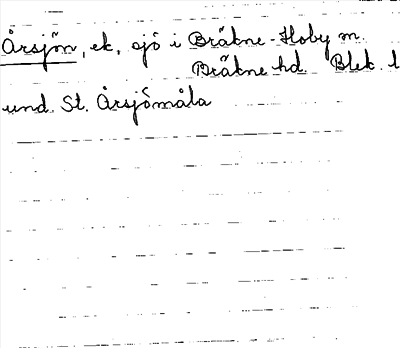 Årsjön, ek, sjö i Bräkne-Hoby sn.
Bräkne hd. Blek. l
und. St. Årsjömåla